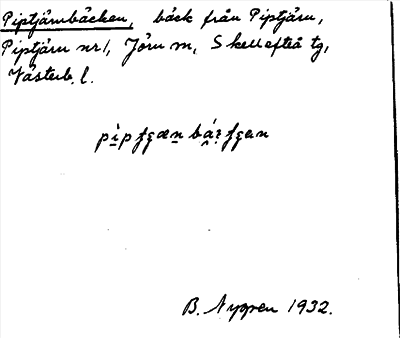 Piptjärnbäcken, bäck från Piptjärn,
Piptjärn nr 1, Jörn sn, Skellefteå tg,
Västerb. l.
B. Nygren 1932.